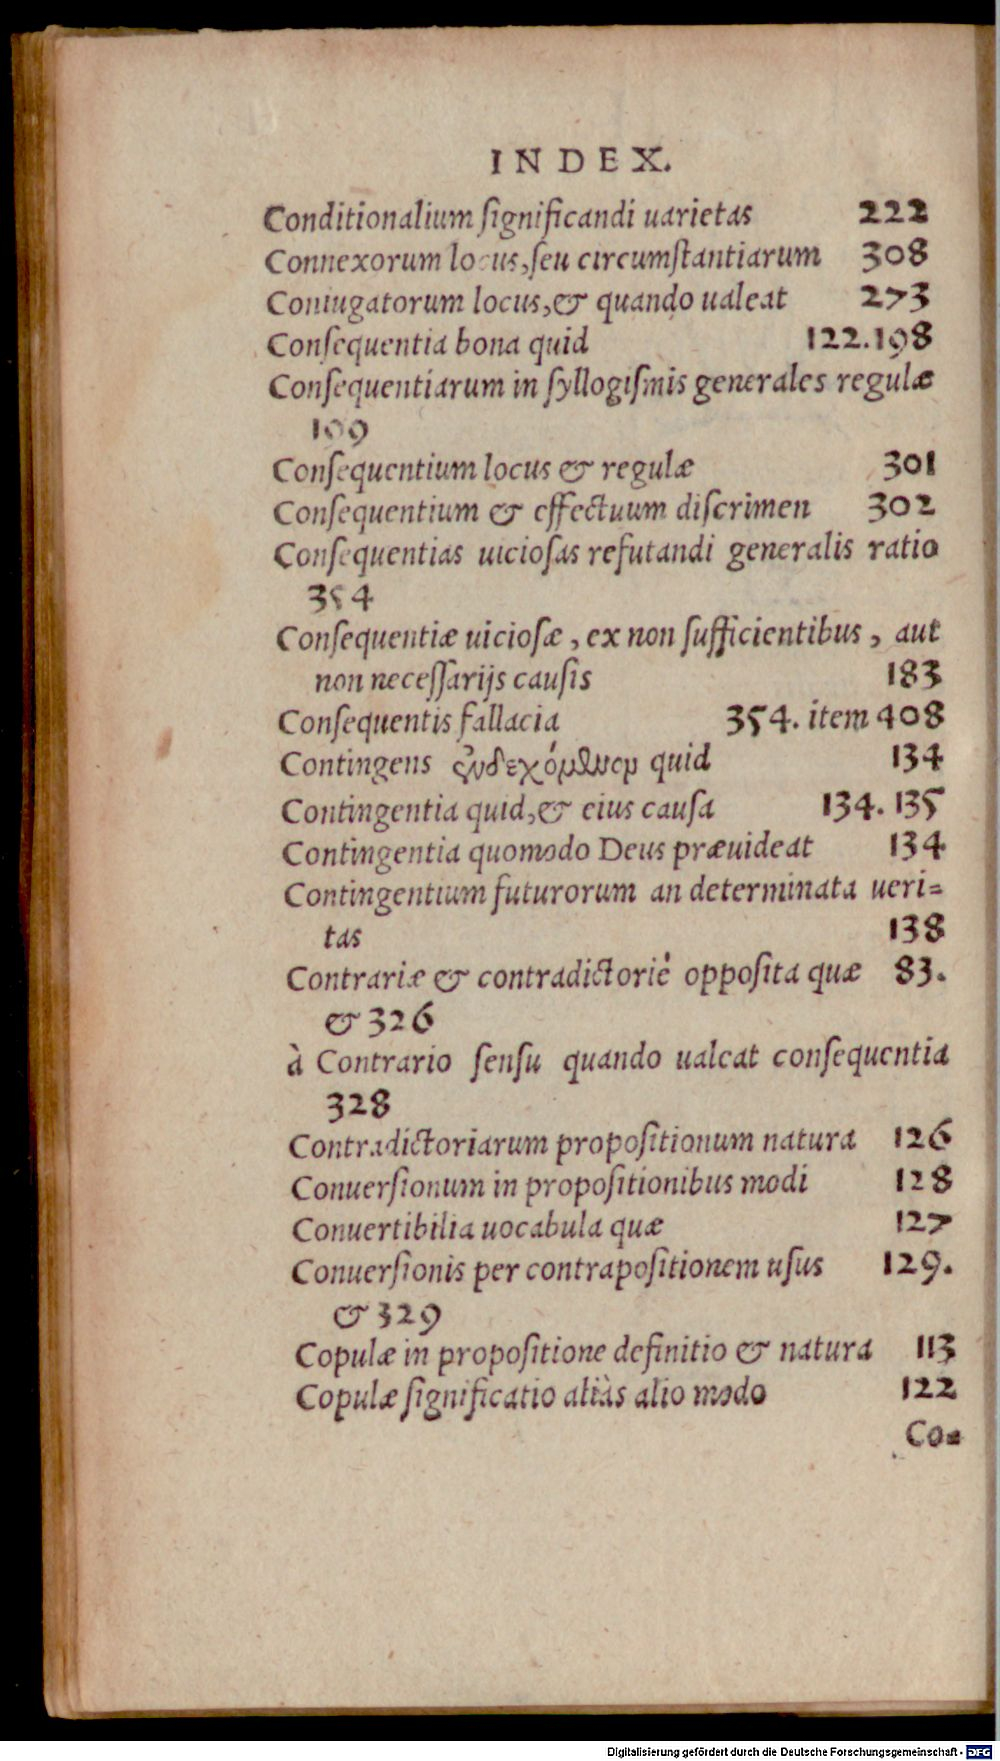 INDEX.
Conditionalium ſignificandi uarietas 222
Connexorum locus, ſeu circumſtantiarum 308
Coniugatorum locus, & quando ualeat 273
Conſequentia bona quid 122.198
Conſequentiarum in ſyllogiſmis generales regulæ
199
Conſequentium locus & regulæ 301
Conſequentium & effectuum diſcrimen 302
Conſequentias uicioſas refutandi generalis ratio
354
Conſequentiæ uicioſæ, ex non ſufficientibus, aut
non neceſſarijs cauſis 183
Conſequentis fallacia 354. item 408
Contingens ἐνδεχόμενον quid 134
Contingentia quid, & eius cauſa 134. 135
Contingentia quomodo Deus præuideat 134
Contingentium futurorum an determinata ueri=
tas 138
Contrariæ & contradictoriè oppoſita quæ 83.
& 326
à Contrario ſenſu quando ualeat conſequentia
328
Contradictoriarum propoſitionum natura 126
Conuerſionum in propoſitionibus modi 128
Conuertibilia uocabula quæ 127
Conuerſionis per contrapoſitionem uſus 129.
& 329
Copulæ in propoſitione definitio & natura 113
Copulæ ſignificatio aliàs alio modo 122
Co=
Digitalisierung gefördert durch die Deutsche Forschungsgemeinschaft - DFG